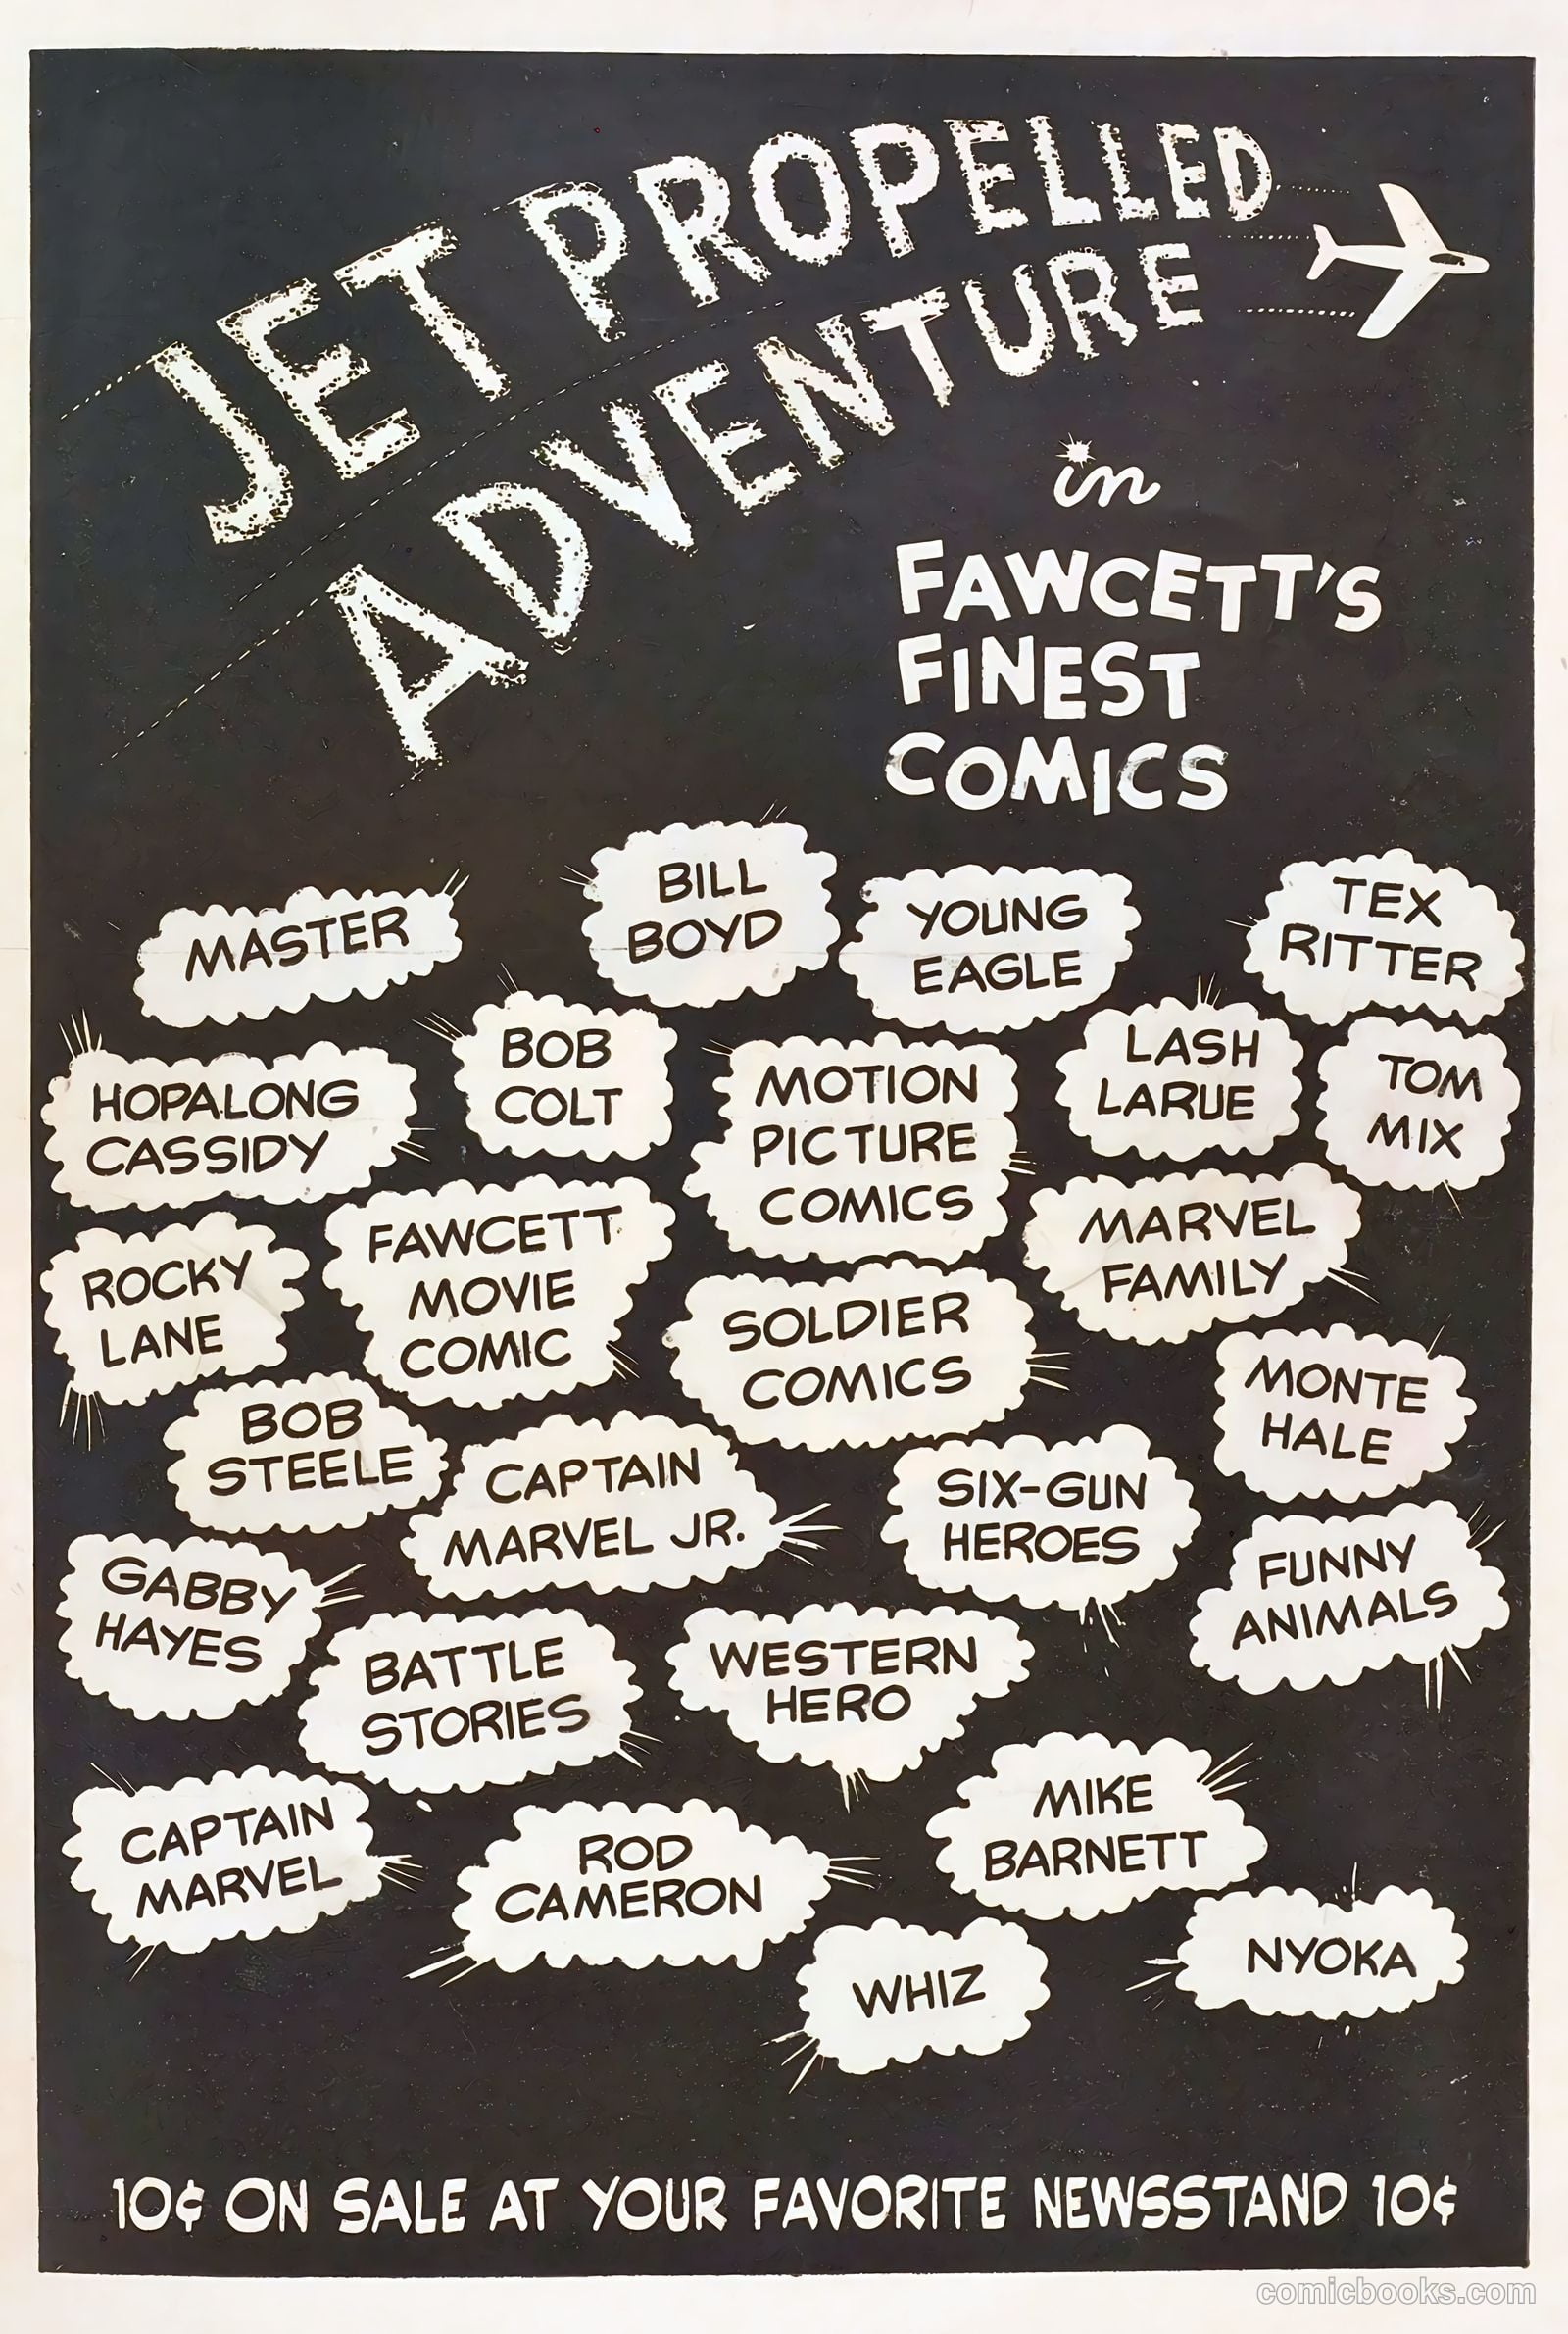 JET PROPELLED
ADVENTURE
in
FAWCETT'S
FINEST
COMICS
MASTER
BILL
BOYD
YOUNG
EAGLE
TEX
RITTER
HOPALONG
CASSIDY
BOB
COLT
MOTION
PICTURE
COMICS
LASH
LARUE
TOM
MIX
ROCKY
LANE
FAWCETT
MOVIE
COMIC
MARVEL
FAMILY
SOLDIER
COMICS
MONTE
HALE
BOB
STEELE
CAPTAIN
MARVEL JR.
SIX-GUN
HEROES
FUNNY
ANIMALS
GABBY
HAYES
BATTLE
STORIES
WESTERN
HERO
CAPTAIN
MARVEL
ROD
CAMERON
MIKE
BARNETT
WHIZ
NYOKA
10¢ ON SALE AT YOUR FAVORITE NEWSSTAND 10¢
comicbooks.com